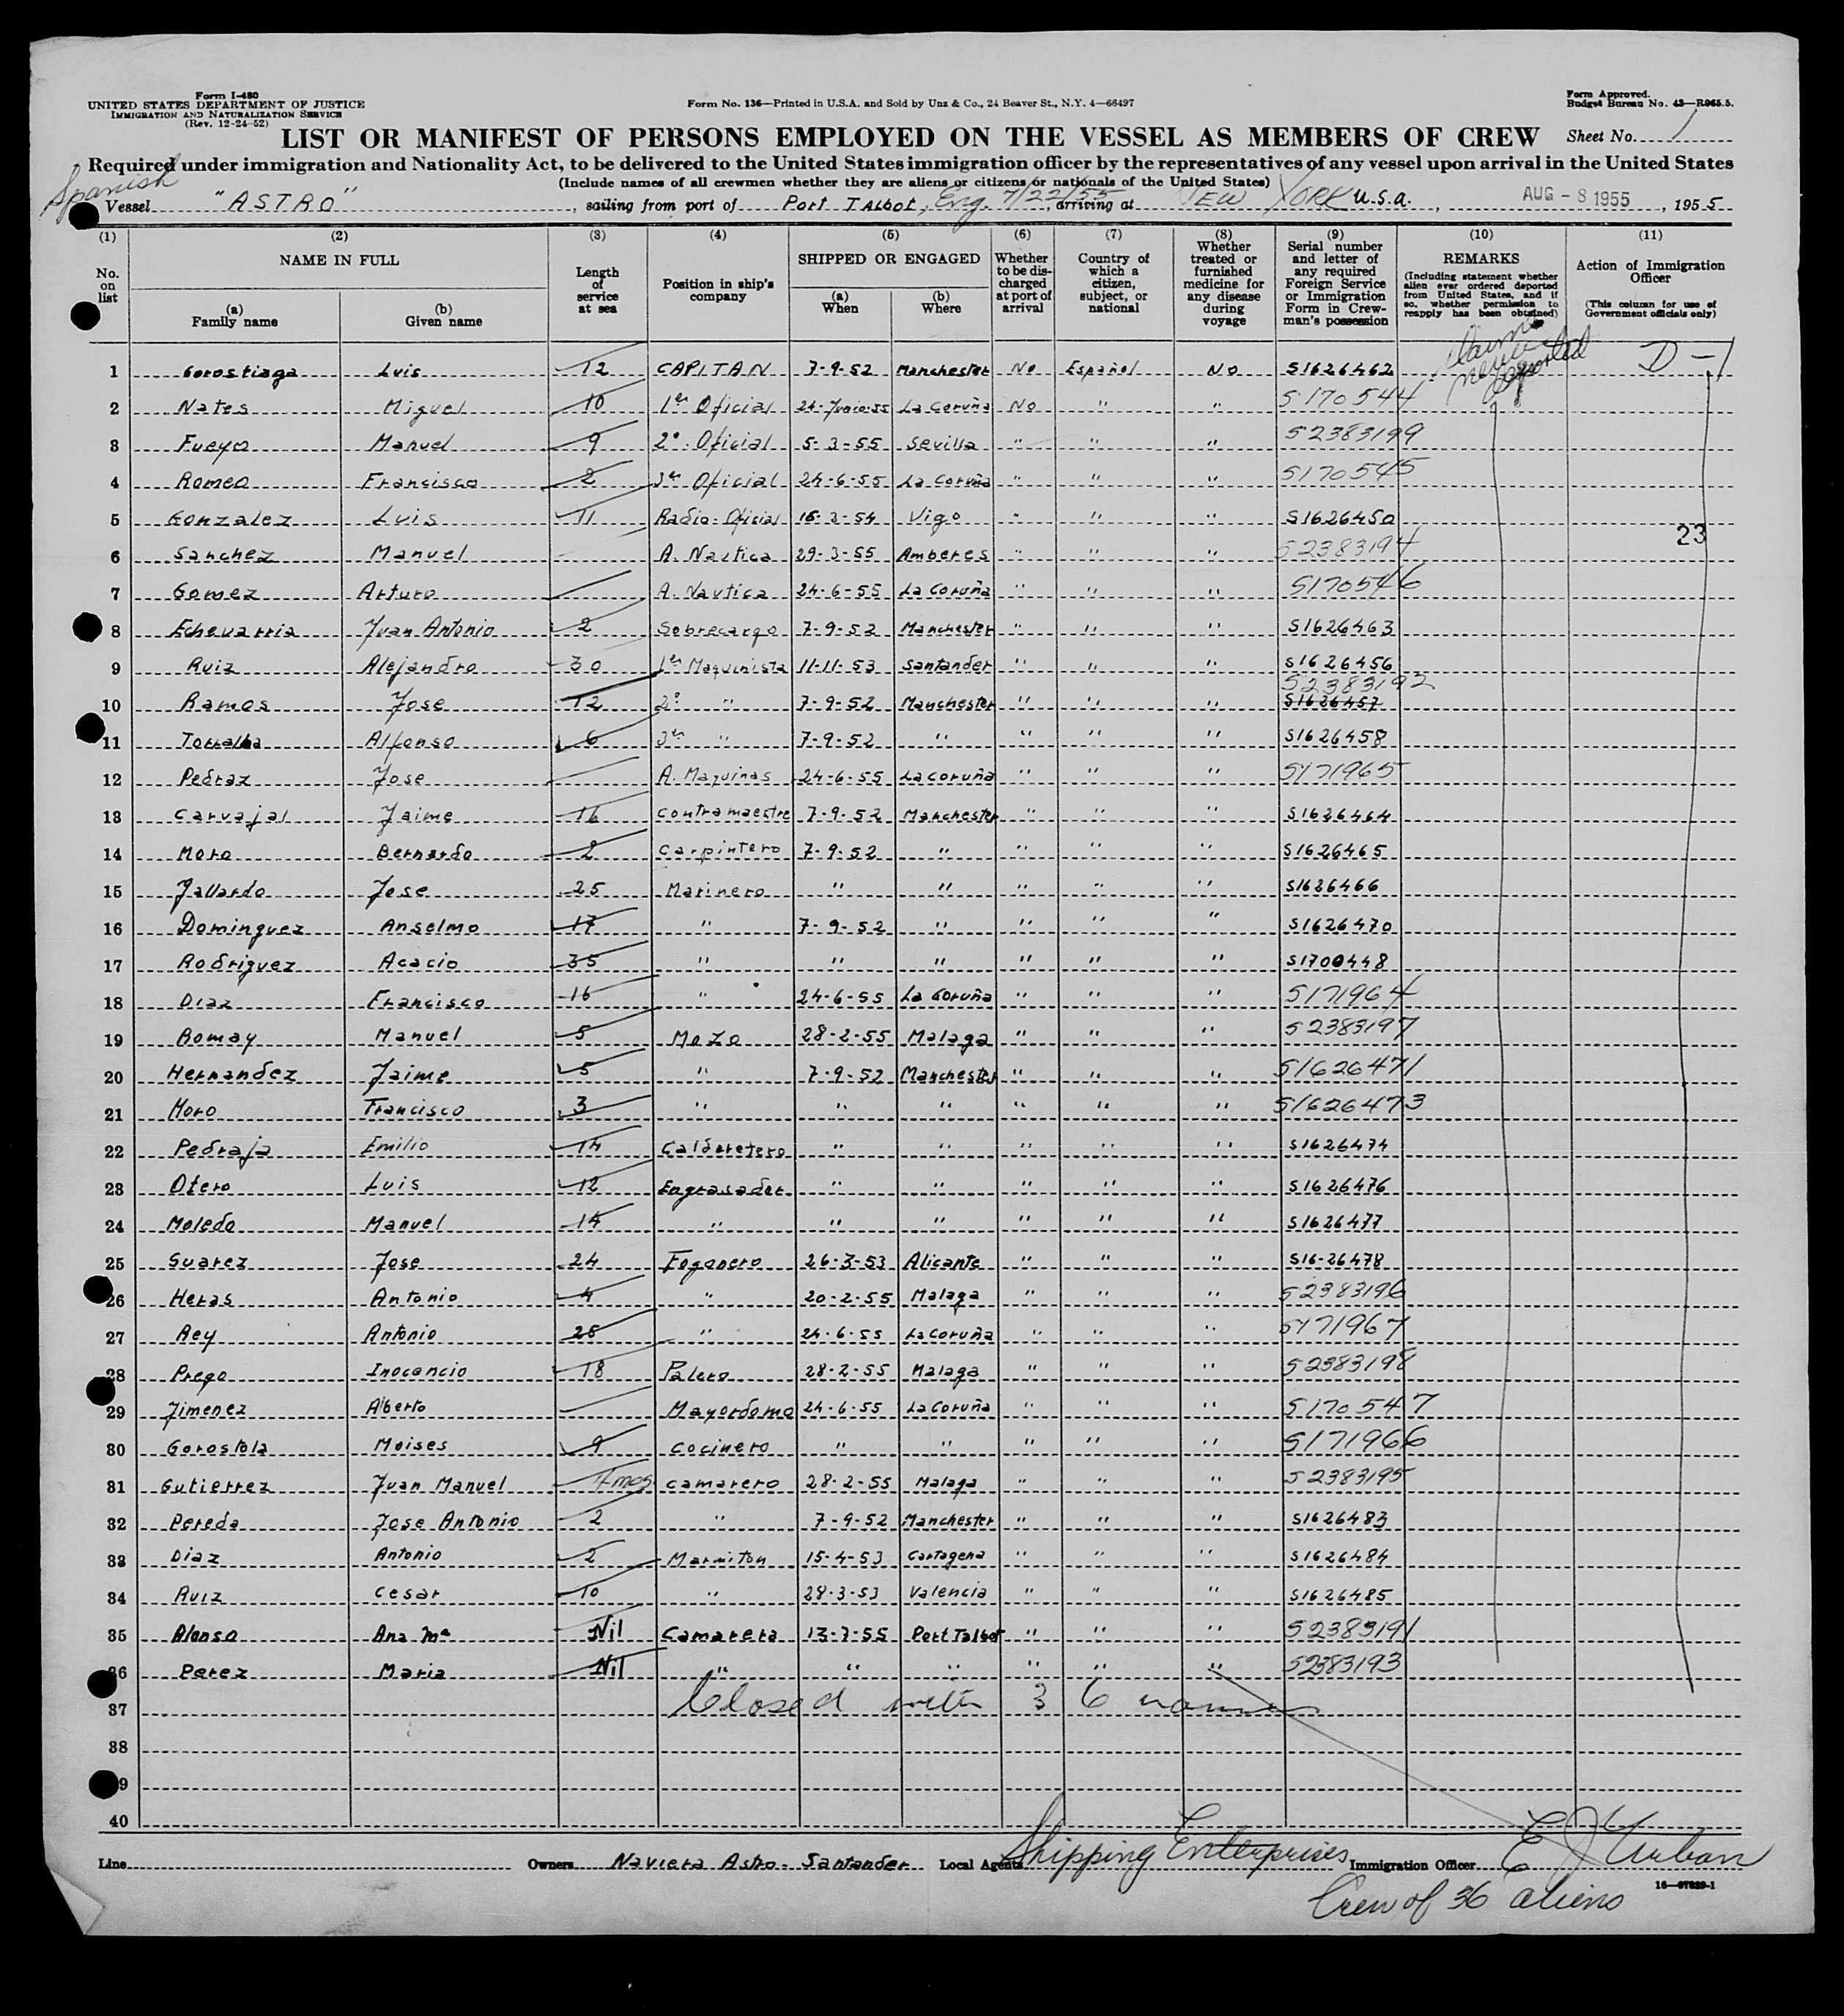 Form I-480
UNITED STATES DEPARTMENT OF JUSTICE
IMMIGRATION AND NATURALIZATION SERVICE
(Rev. 12-24-52)
Form No. 136—Printed in U.S.A. and Sold by Unz & Co., 24 Beaver St., N.Y. 4—66497
Form Approved.
Budget Bureau No. 43—R065.5.
LIST OR MANIFEST OF PERSONS EMPLOYED ON THE VESSEL AS MEMBERS OF CREW Sheet No. 1
Required under immigration and Nationality Act, to be delivered to the United States immigration officer by the representatives of any vessel upon arrival in the United States
(Include names of all crewmen whether they are aliens or citizens or nationals of the United States)
Spanish
Vessel "ASTRO", sailing from port of Port Talbot, Eng. 7/22/55, arriving at NEW YORK U.S.A., AUG - 8 1955, 1955
(1) No. on list
(2) NAME IN FULL (a) Family name (b) Given name
(3) Length of service at sea
(4) Position in ship's company
(5) SHIPPED OR ENGAGED (a) When (b) Where
(6) Whether to be discharged at port of arrival
(7) Country of which a citizen, subject, or national
(8) Whether treated or furnished medicine for any disease during voyage
(9) Serial number and letter of any required Foreign Service or Immigration Form in Crewman's possession
(10) REMARKS (Including statement whether alien ever ordered deported from United States, and if so, whether permission to reapply has been obtained)
(11) Action of Immigration Officer (This column for use of Government officials only)
1 Gorostiaga Luis 12 CAPITAN 7-9-52 Manchester No Español No S1626462 Claims never deported D-1
2 Nates Miguel 10 1er Oficial 24-Junio-55 La Coruña No " " S170544
3 Fueyo Manuel 9 2º Oficial 5-3-55 Sevilla " " " S2383199
4 Romeo Francisco 2 3er Oficial 24-6-55 La Coruña " " " S170545
5 Gonzalez Luis 11 Radio-Oficial 15-3-54 Vigo " " " S1626450
23
6 Sanchez Manuel A. Nautica 29-3-55 Amberes " " " S2383194
7 Gomez Arturo A. Nautica 24-6-55 La Coruña " " " S170546
8 Echevarria Juan Antonio 2 Sobrecargo 7-9-52 Manchester " " " S1626463
9 Ruiz Alejandro 30 1er Maquinista 11-11-53 Santander " " " S1626456
S2383192
10 Ramos Jose 12 2º " 7-9-52 Manchester " " " S1626457
11 Torralba Alfonso 6 3er " 7-9-52 " " " " S1626458
12 Pedraz Jose A. Maquinas 24-6-55 La Coruña " " " S171965
13 Carvajal Jaime 16 Contramaestre 7-9-52 Manchester " " " S1626464
14 Moro Bernardo 2 Carpintero 7-9-52 " " " " S1626465
15 Gallardo Jose 25 Marinero " " " " " S1626466
16 Dominguez Anselmo 17 " 7-9-52 " " " " S1626470
17 Rodriguez Acacio 35 " " " " " " S1700448
18 Diaz Francisco 16 " 24-6-55 La Coruña " " " S171964
19 Romay Manuel 5 Mozo 28-2-55 Malaga " " " S2383197
20 Hernandez Jaime 5 " 7-9-52 Manchester " " " S1626471
21 Moro Francisco 3 " " " " " " S1626473
22 Pedraja Emilio 14 Calderetero " " " " " S1626474
23 Otero Luis 12 Engrasador " " " " " S1626476
24 Moledo Manuel 14 " " " " " " S1626477
25 Suarez Jose 24 Fogonero 26-3-53 Alicante " " " S16-26478
26 Heras Antonio 4 " 20-2-55 Malaga " " " S2383196
27 Rey Antonio 25 " 24-6-55 La Coruña " " " S171967
28 Prego Inocencio 18 Palero 28-2-55 Malaga " " " S2383198
29 Jimenez Alberto Mayordomo 24-6-55 La Coruña " " " S170547
30 Gorostola Moises 9 Cocinero " " " " " S171966
31 Gutierrez Juan Manuel 7mos Camarero 28-2-55 Malaga " " " S2383195
32 Pereda Jose Antonio 2 " 7-9-52 Manchester " " " S1626483
33 Diaz Antonio 2 Marmiton 15-4-53 Cartagena " " " S1626484
34 Ruiz Cesar 10 " 28-3-53 Valencia " " " S1626485
35 Alonso Ana Mª Nil Camarera 13-7-55 Port Talbot " " " S2383191
36 Perez Maria Nil " " " " " " S2383193
37 Closed with 36 names
38
39
40
Line Owners Naviera Astro - Santander Local Agents Shipping Enterprises Immigration Officer E J Urban
16—67829-1
Crew of 36 aliens